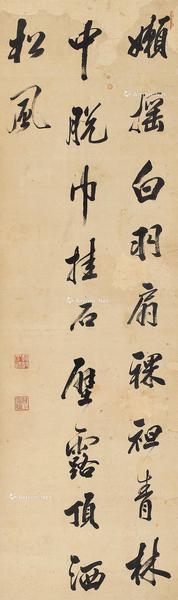 嬾摇白羽扇裸袒青林
中脫巾挂石壁露頂洒
松風